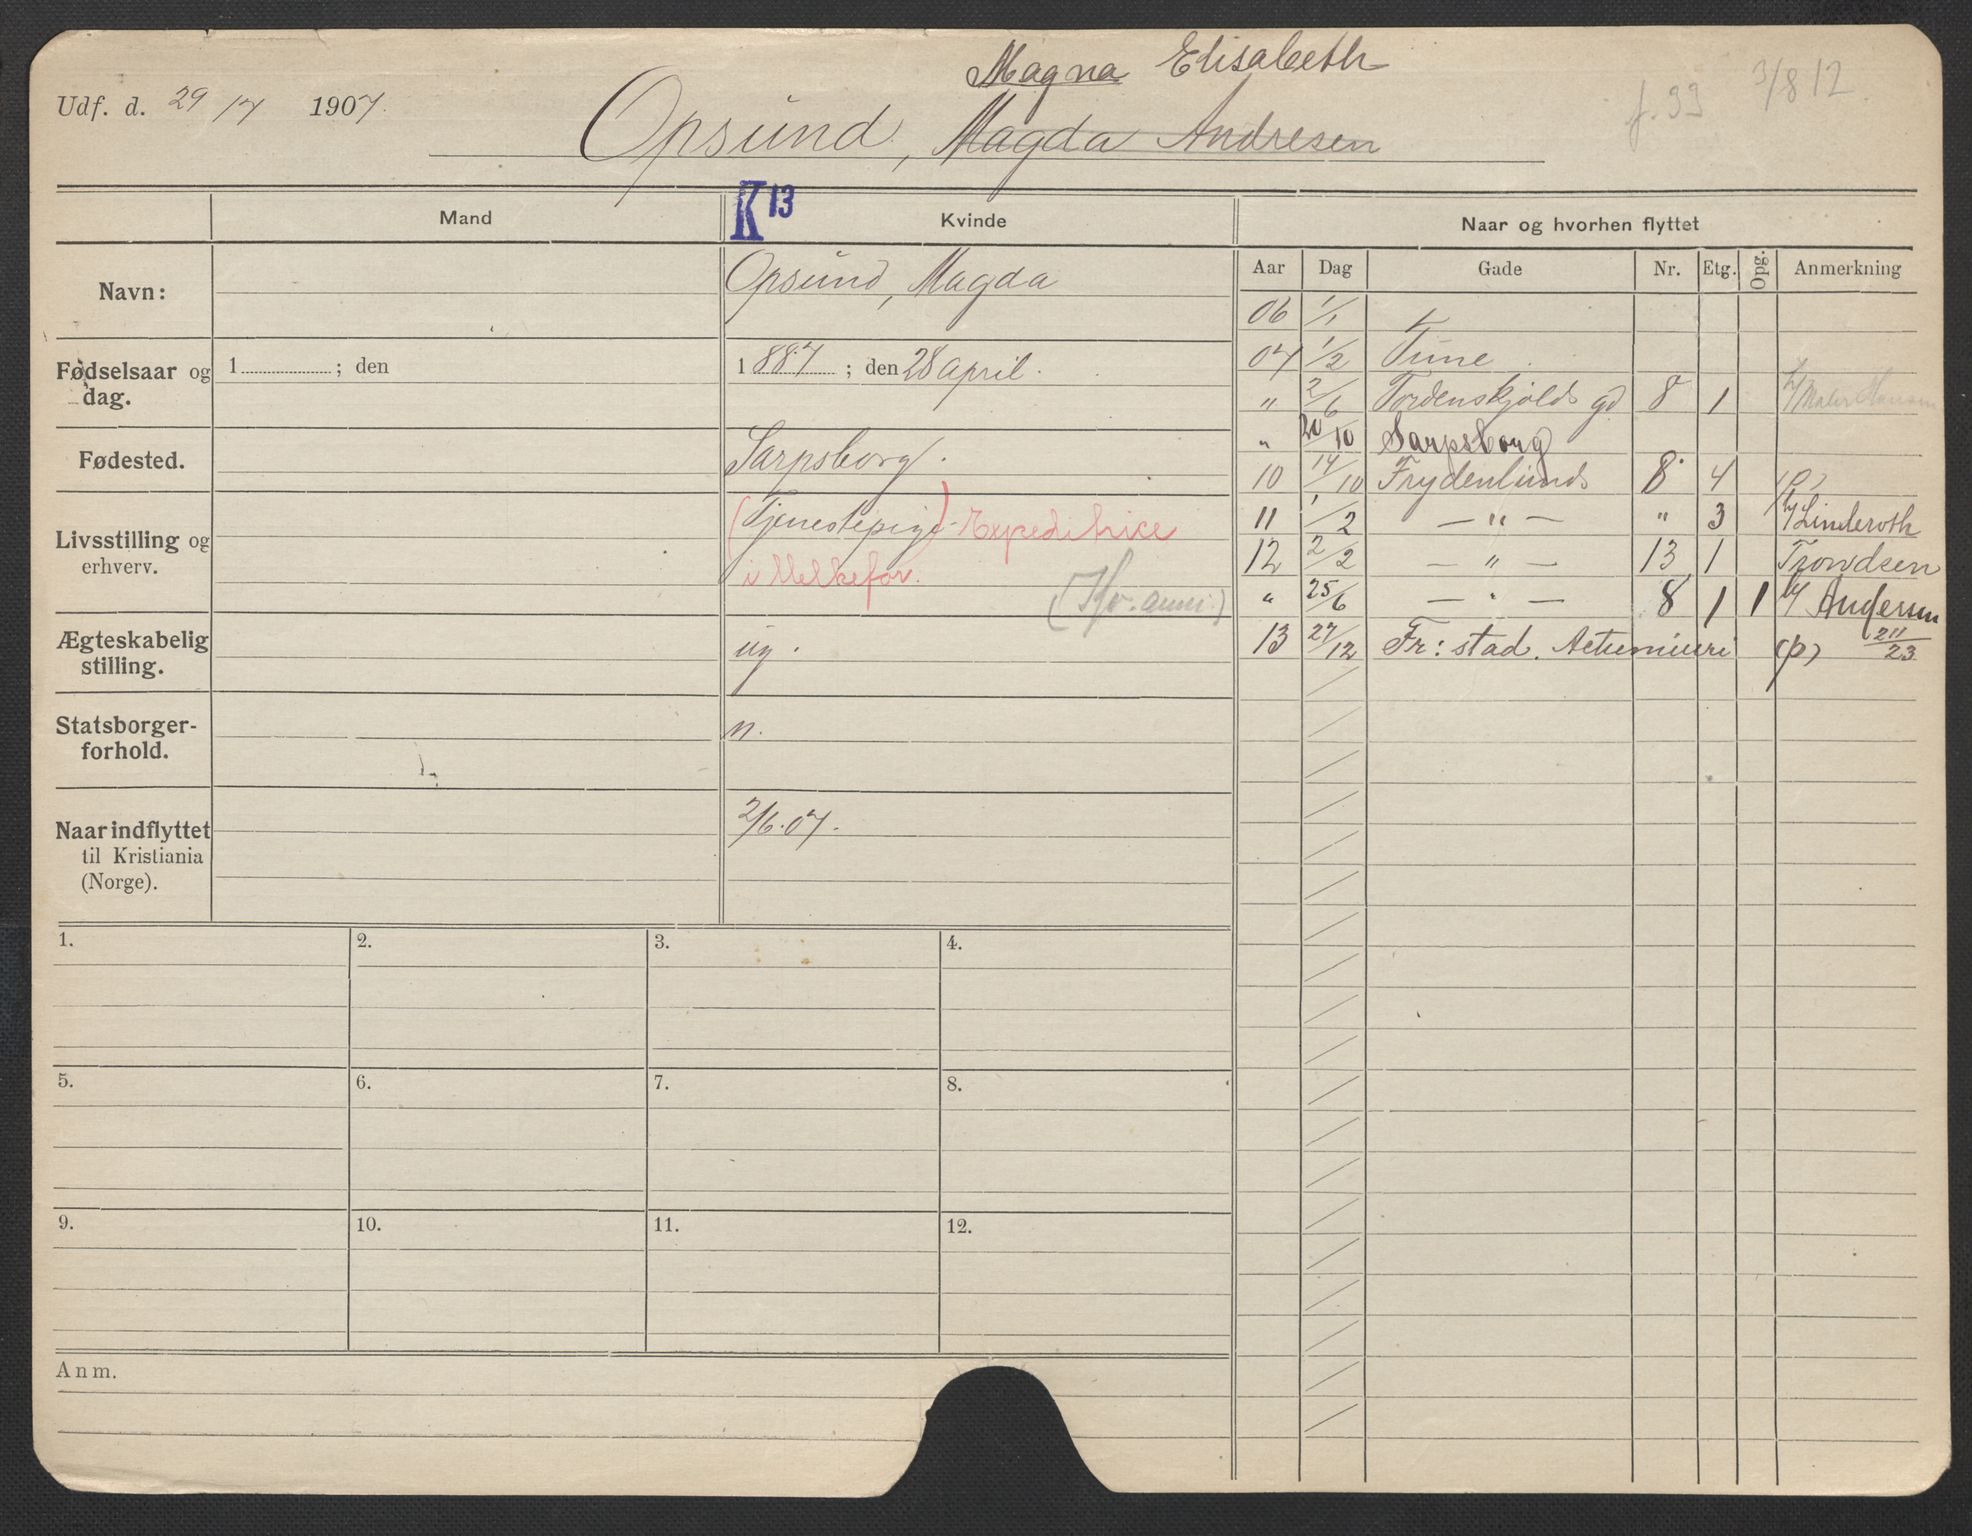 Magna Elisabeth
Udf. d. 29/7 1907.
Opsund, Magda Andresen
f. 33 3/8 12
K 13
Mand Kvinde Naar og hvorhen flyttet
Aar Dag Gade Nr. Etg. Opg. Anmerkning
Navn: Opsund, Magda
Fødselsaar og dag. 1 ; den 1 887 ; den 28 april.
Fødested. Sarpsborg.
Livsstilling og erhverv. (Tjenestepige) Expeditrice
i Melkefor.
Ægteskabelig stilling. ug.
Statsborgerforhold. n.
Naar indflyttet til Kristiania (Norge). 2/6.07.
06 1/1
07 1/2 Tune
" 2/6 Tordenskjolds gd 8 1 h/ Maler Hansen
" 20/10 Sarpsborg
10 14/10 Frydenlunds 8 4 (p)
11 1/2 — " — " 3 h/ Linderoth
12 2/2 — " — 13 1 Trondsen
" 25/6 — " — 8 1 1 h/ Andersen
13 27/12 Fr: stad. (p) 211/23
1. 2. 3. 4.
5. 6. 7. 8.
9. 10. 11. 12.
Anm.